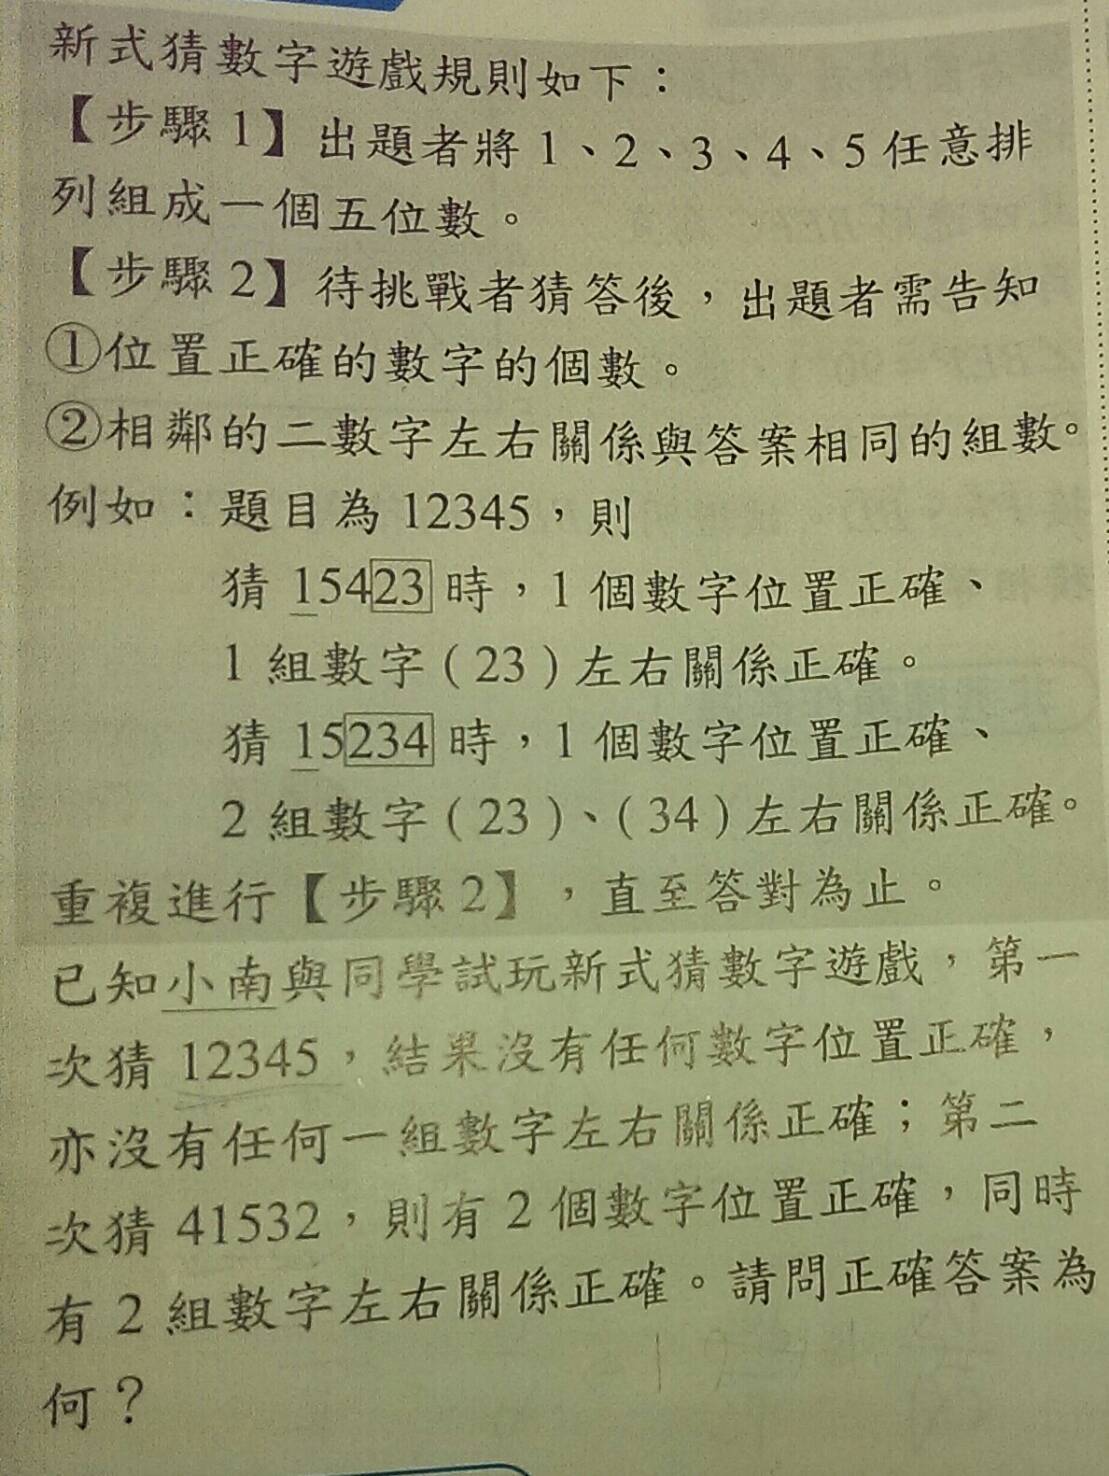 新式猜數字遊戲規則如下：
【步驟1】出題者將1、2、3、4、5任意排
列組成一個五位數。
【步驟2】待挑戰者猜答後，出題者需告知
①位置正確的數字的個數。
②相鄰的二數字左右關係與答案相同的組數。
例如：題目為12345，則
猜15423時，1個數字位置正確、
1組數字(23)左右關係正確。
猜15234時，1個數字位置正確、
2組數字(23)、(34)左右關係正確。
重複進行【步驟2】，直至答對為止。
已知小南與同學試玩新式猜數字遊戲，第一
次猜12345，結果沒有任何數字位置正確，
亦沒有任何一組數字左右關係正確；第二
次猜41532，則有2個數字位置正確，同時
有2組數字左右關係正確。請問正確答案為
何？